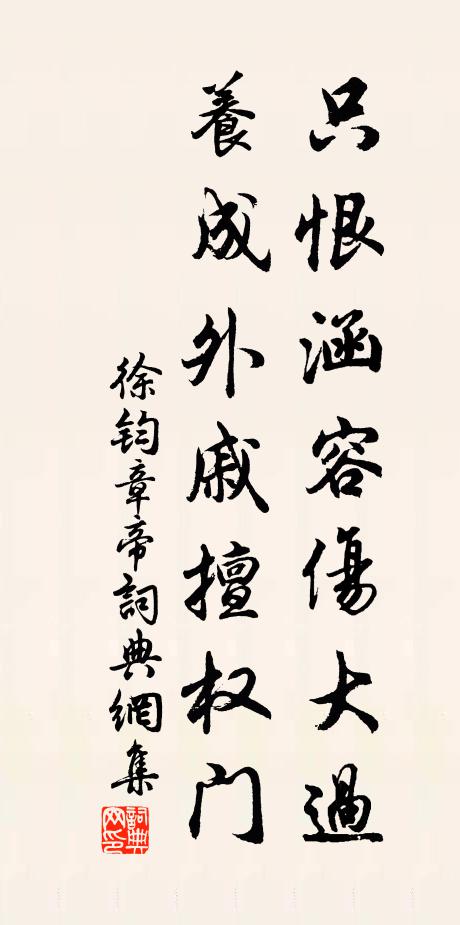 只恨涵容傷大過
養成外戚擅权门
徐鈞章帝詞典網集
詞典网印